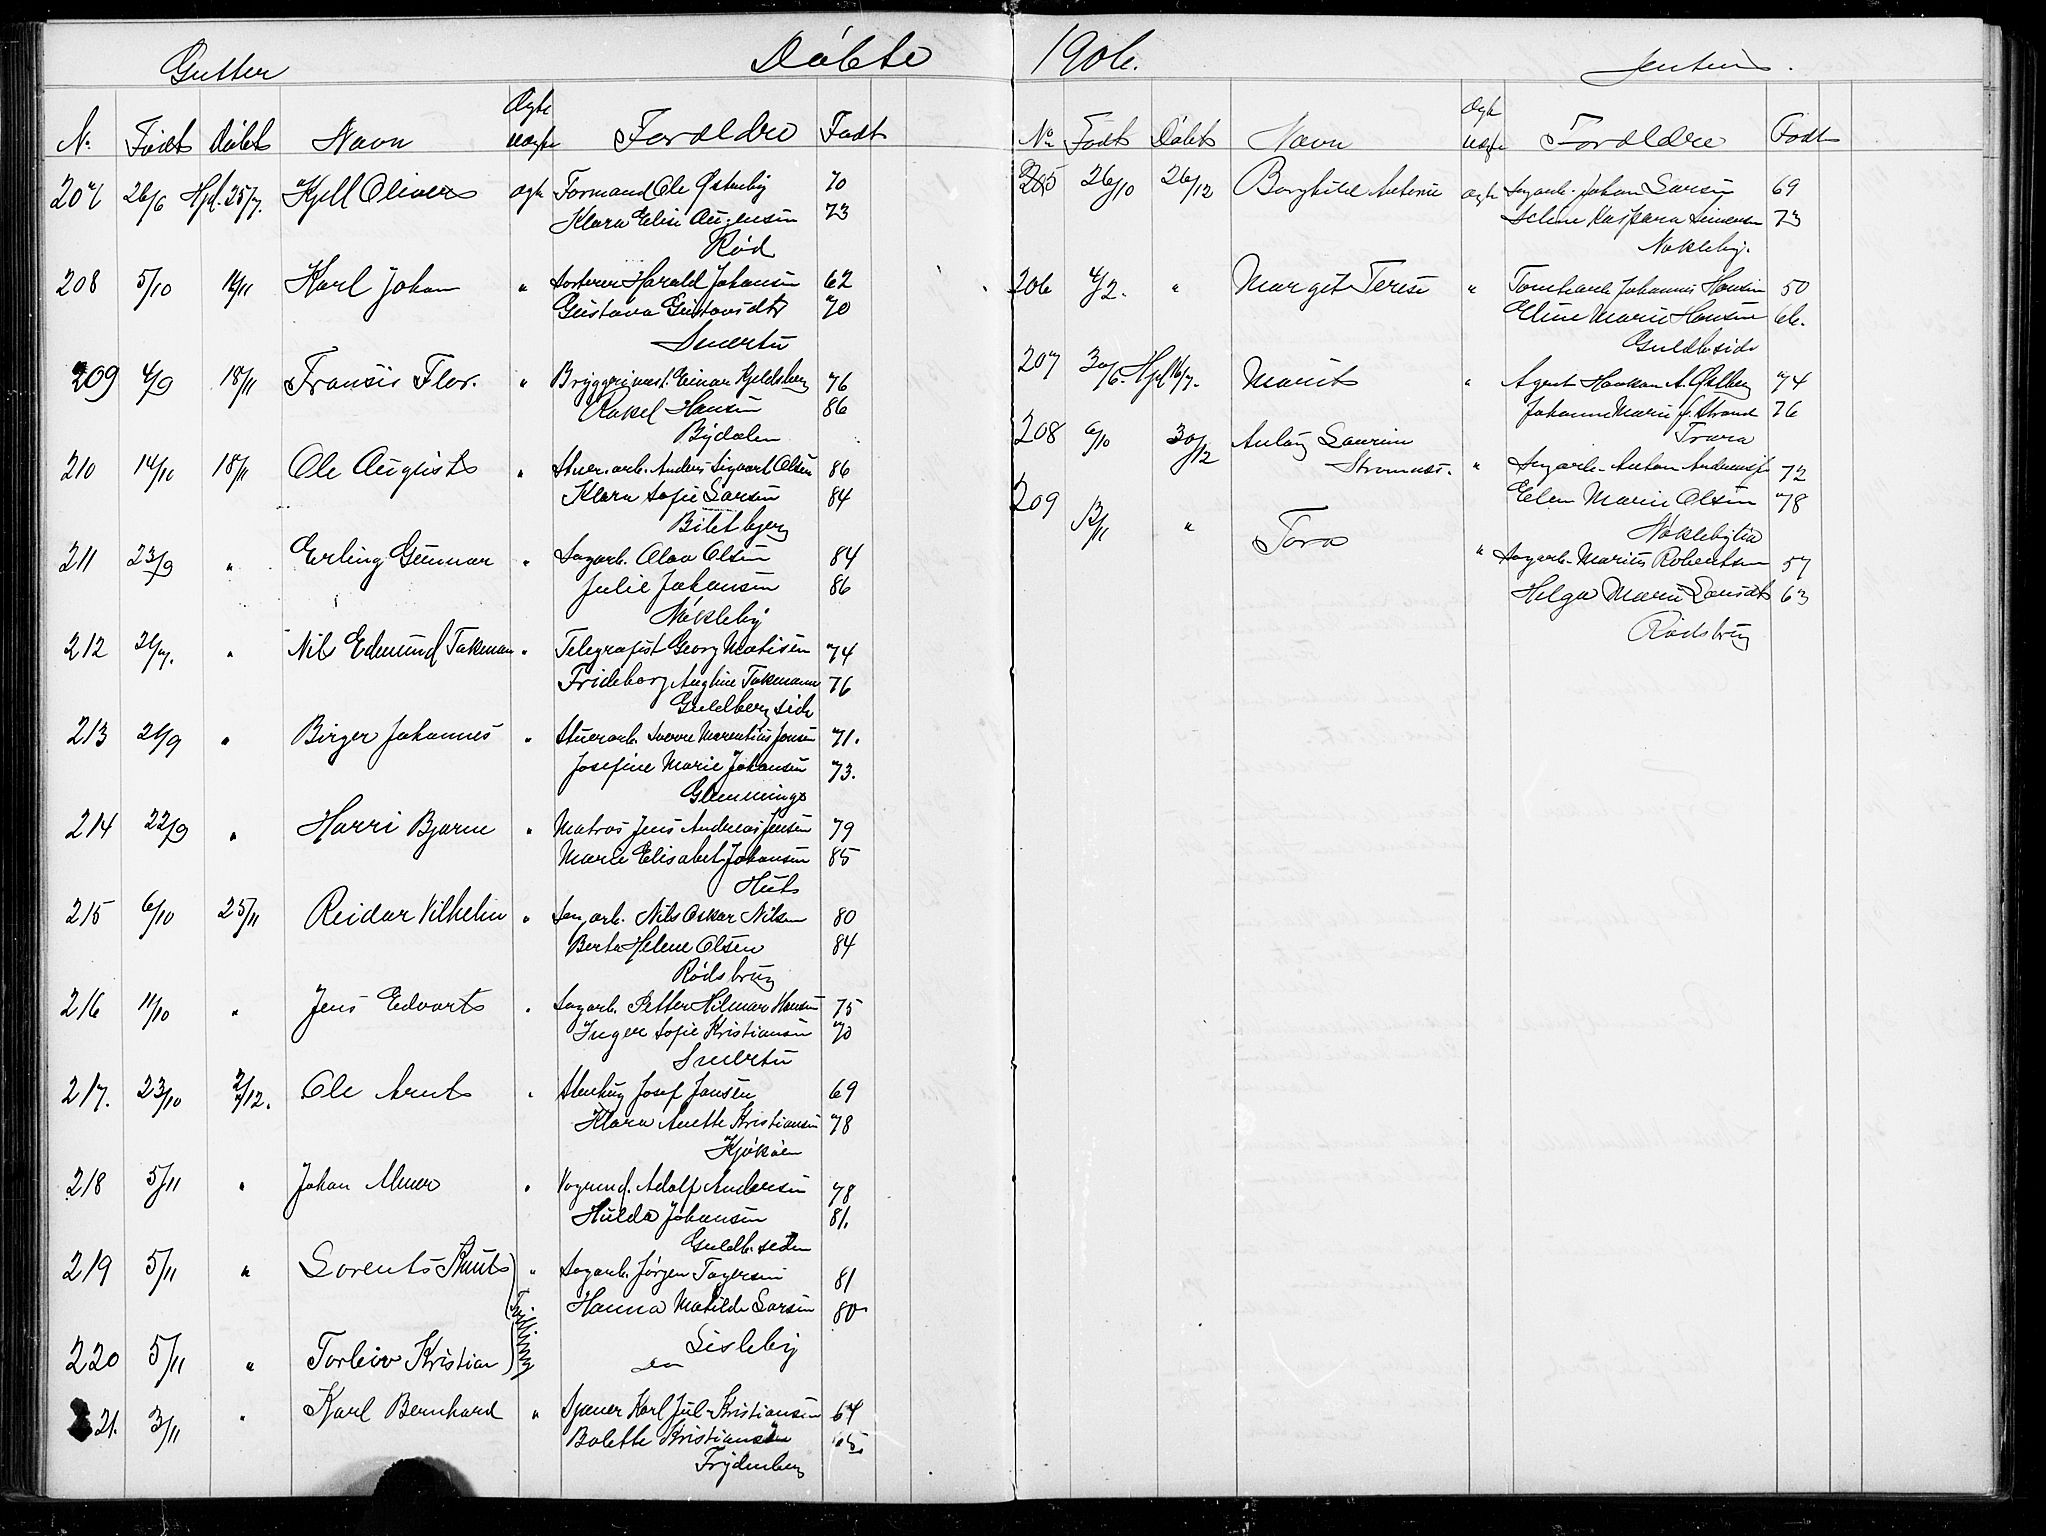 Gutter Døbte
N. Født Døbt Navn Ægte uægte Forældre Født
207 26/6 Hjd. 25/7. Kjell Oliver ægte Formand Ole Østenbÿ 70
Klara Elise Augensen 73
Rød
208 5/10 Karl Johan " Sorterer Harald Johansen 62
Gustava Gustavsdtr 70
Smertu
209 4/9 18/11 Fransis Flor. " Bryggerimest. Einar Kjeldsberg 76
Rakel Hansen 86
Bydalen
210 14/10 18/11 Ole August " Stuer.arb. Anders Sigvart Olsen 86
Klara Sofie Larsen 84
Biletbjerg
211 23/9 " Erling Gunnar " Sagarb. Olav Olsen 84
Julie Johansen 86
Nøkleby
212 21/7. " Nils Edmund Takman " Telegrafist Georg Matisen 74
Frideborg Takmann 76
Guldberg side
213 21/9 " Birger Johannes " Stuerarb. Laurentius Jensen 71.
Josefine Marie Johansen 73.
Glemminge
214 22/9 " Harri Bjarne " Matros Jens Andreas Jensen 79
Marie Elisabet Johansen 85
Hut
215 6/10 25/11 Reidar Vilhelm " Sagarb. Nils Oskar Nilsen 80
Berta Helene Olsen 84
Rødsbrug
216 11/10 " Jens Edvart " Sagarb. Petter Hilmar Hansen 75
Inger Sofie Kristiansen 70
Smertu
217. 23/10 2/12. Ole Arnt " Stenhug Josef Jansen 69
Klara Anette Kristiansen 78
Kjøkøen
218 5/11 " Johan Almer " Vognmd. Adolf Andersen 78
Hulda Johansen 81.
Guldb. siden
219 5/11 " Lorents Knut " Sagarb. Jørgen Tagersen 81
Hanna Matilde Larsen 80
Tvillinger
Lisleby
220 5/11 " Torleiv Kristian
221. 3/11 " Karl Bernhard " Karl Jul. Kristiansen 64
Bolette Kristiansen 65
Frydenberg
1906. Jenter.
No Født Døbt Navn Ægte uægte Forældre Født
205 26/10 26/12 Borghild Antonie ægte Sagarb. Johan Larsen 69
Seline Kaspara Simensen 73
Nøkleby.
206 4/2. " Margit Terese " Tomtearb Johannes Hansen 50
Eline Marie Hansen 66.
Guldb. side
207 30/6. Hjd 16/7. Marit " Agent Haakon A. Østberg 74
Johanne Marie f. Strand 76
Trara
208 6/10 30/12 Aslaug Laurine
Stromnes. " Sagarb. Anton Andreasen 72
Elen Marie Olsen 78
Nøklebylia
209 13/11 " Tora
" Sagarb. Marius Robertsen 57
Helga Marie Larsdtr 63
Rødsbrug